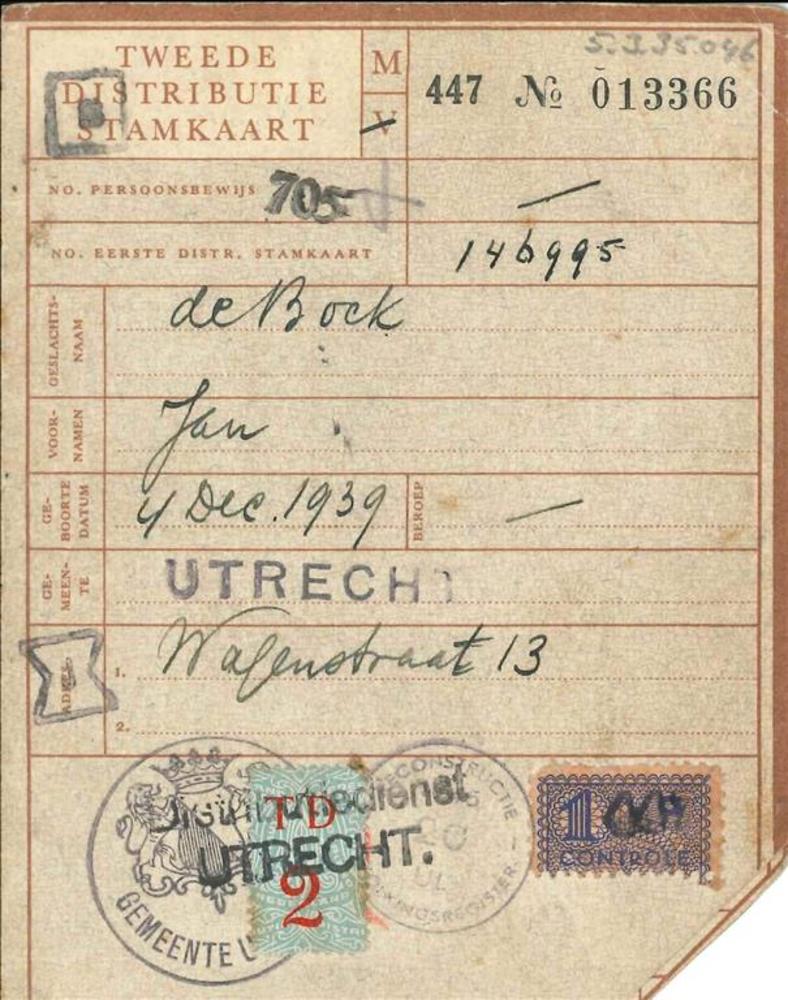 5.3.35.046
TWEEDE
DISTRIBUTIE
STAMKAART
M
V
447 No 013366
NO. PERSOONSBEWIJS 705 —
NO. EERSTE DISTR. STAMKAART 146995
GESLACHTS-
NAAM
de Bock
VOOR-
NAMEN
Jan
GE-
BOORTE
DATUM
4 Dec. 1939
BEROEP
—
GE-
MEEN-
TE
UTRECHT
ADRES
1. Wagenstraat 13
2.
Distributiedienst
UTRECHT.
TD
2
GEMEENTE U
RECONSTRUCTIE
BEVOLKINGSREGISTER
1
CONTROLE